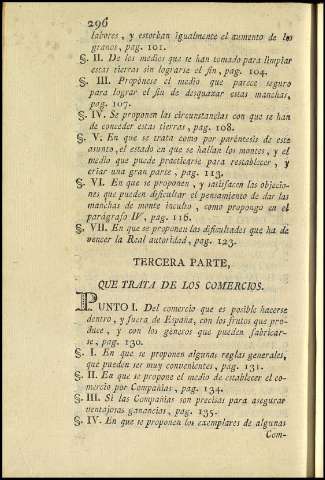 296
labores, y estorban igualmente el aumento de los
granos, pag. 101.
§. II. De los medios que se han tomado para limpiar
estas tierras sin lograrse el fin, pag. 104.
§. III. Propónese el medio que parece seguro
para lograr el fin de desquaxar estas manchas,
pag. 107.
§. IV. Se proponen las circunstancias con que se han
de conceder estas tierras, pag. 108.
§. V. En que se trata como por paréntesis de este
asunto, el estado en que se hallan los montes, y el
medio que puede practicarse para restablecer, y
criar una gran parte, pag. 113.
§. VI. En que se proponen, y satisfacen las objecio-
nes que pueden dificultar el pensamiento de dar las
manchas de monte inculto, como propongo en el
parágrafo IV, pag. 116.
§. VII. En que se proponen las dificultades que ha de
vencer la Real autoridad, pag. 123.
TERCERA PARTE,
QUE TRATA DE LOS COMERCIOS.
PUNTO I. Del comercio que es posible hacerse
dentro, y fuera de España, con los frutos que pro-
duce, y con los géneros que pueden fabricar-
se, pag. 130.
§. I. En que se proponen algunas reglas generales,
que pueden ser muy convenientes, pag. 131.
§. II. En que se propone el medio de establecer el co-
mercio por Compañias, pag. 134.
§. III. Si las Compañias son precisas para asegurar
ventajosas ganancias, pag. 135.
§. IV. En que se proponen los exemplares de algunas
Com-